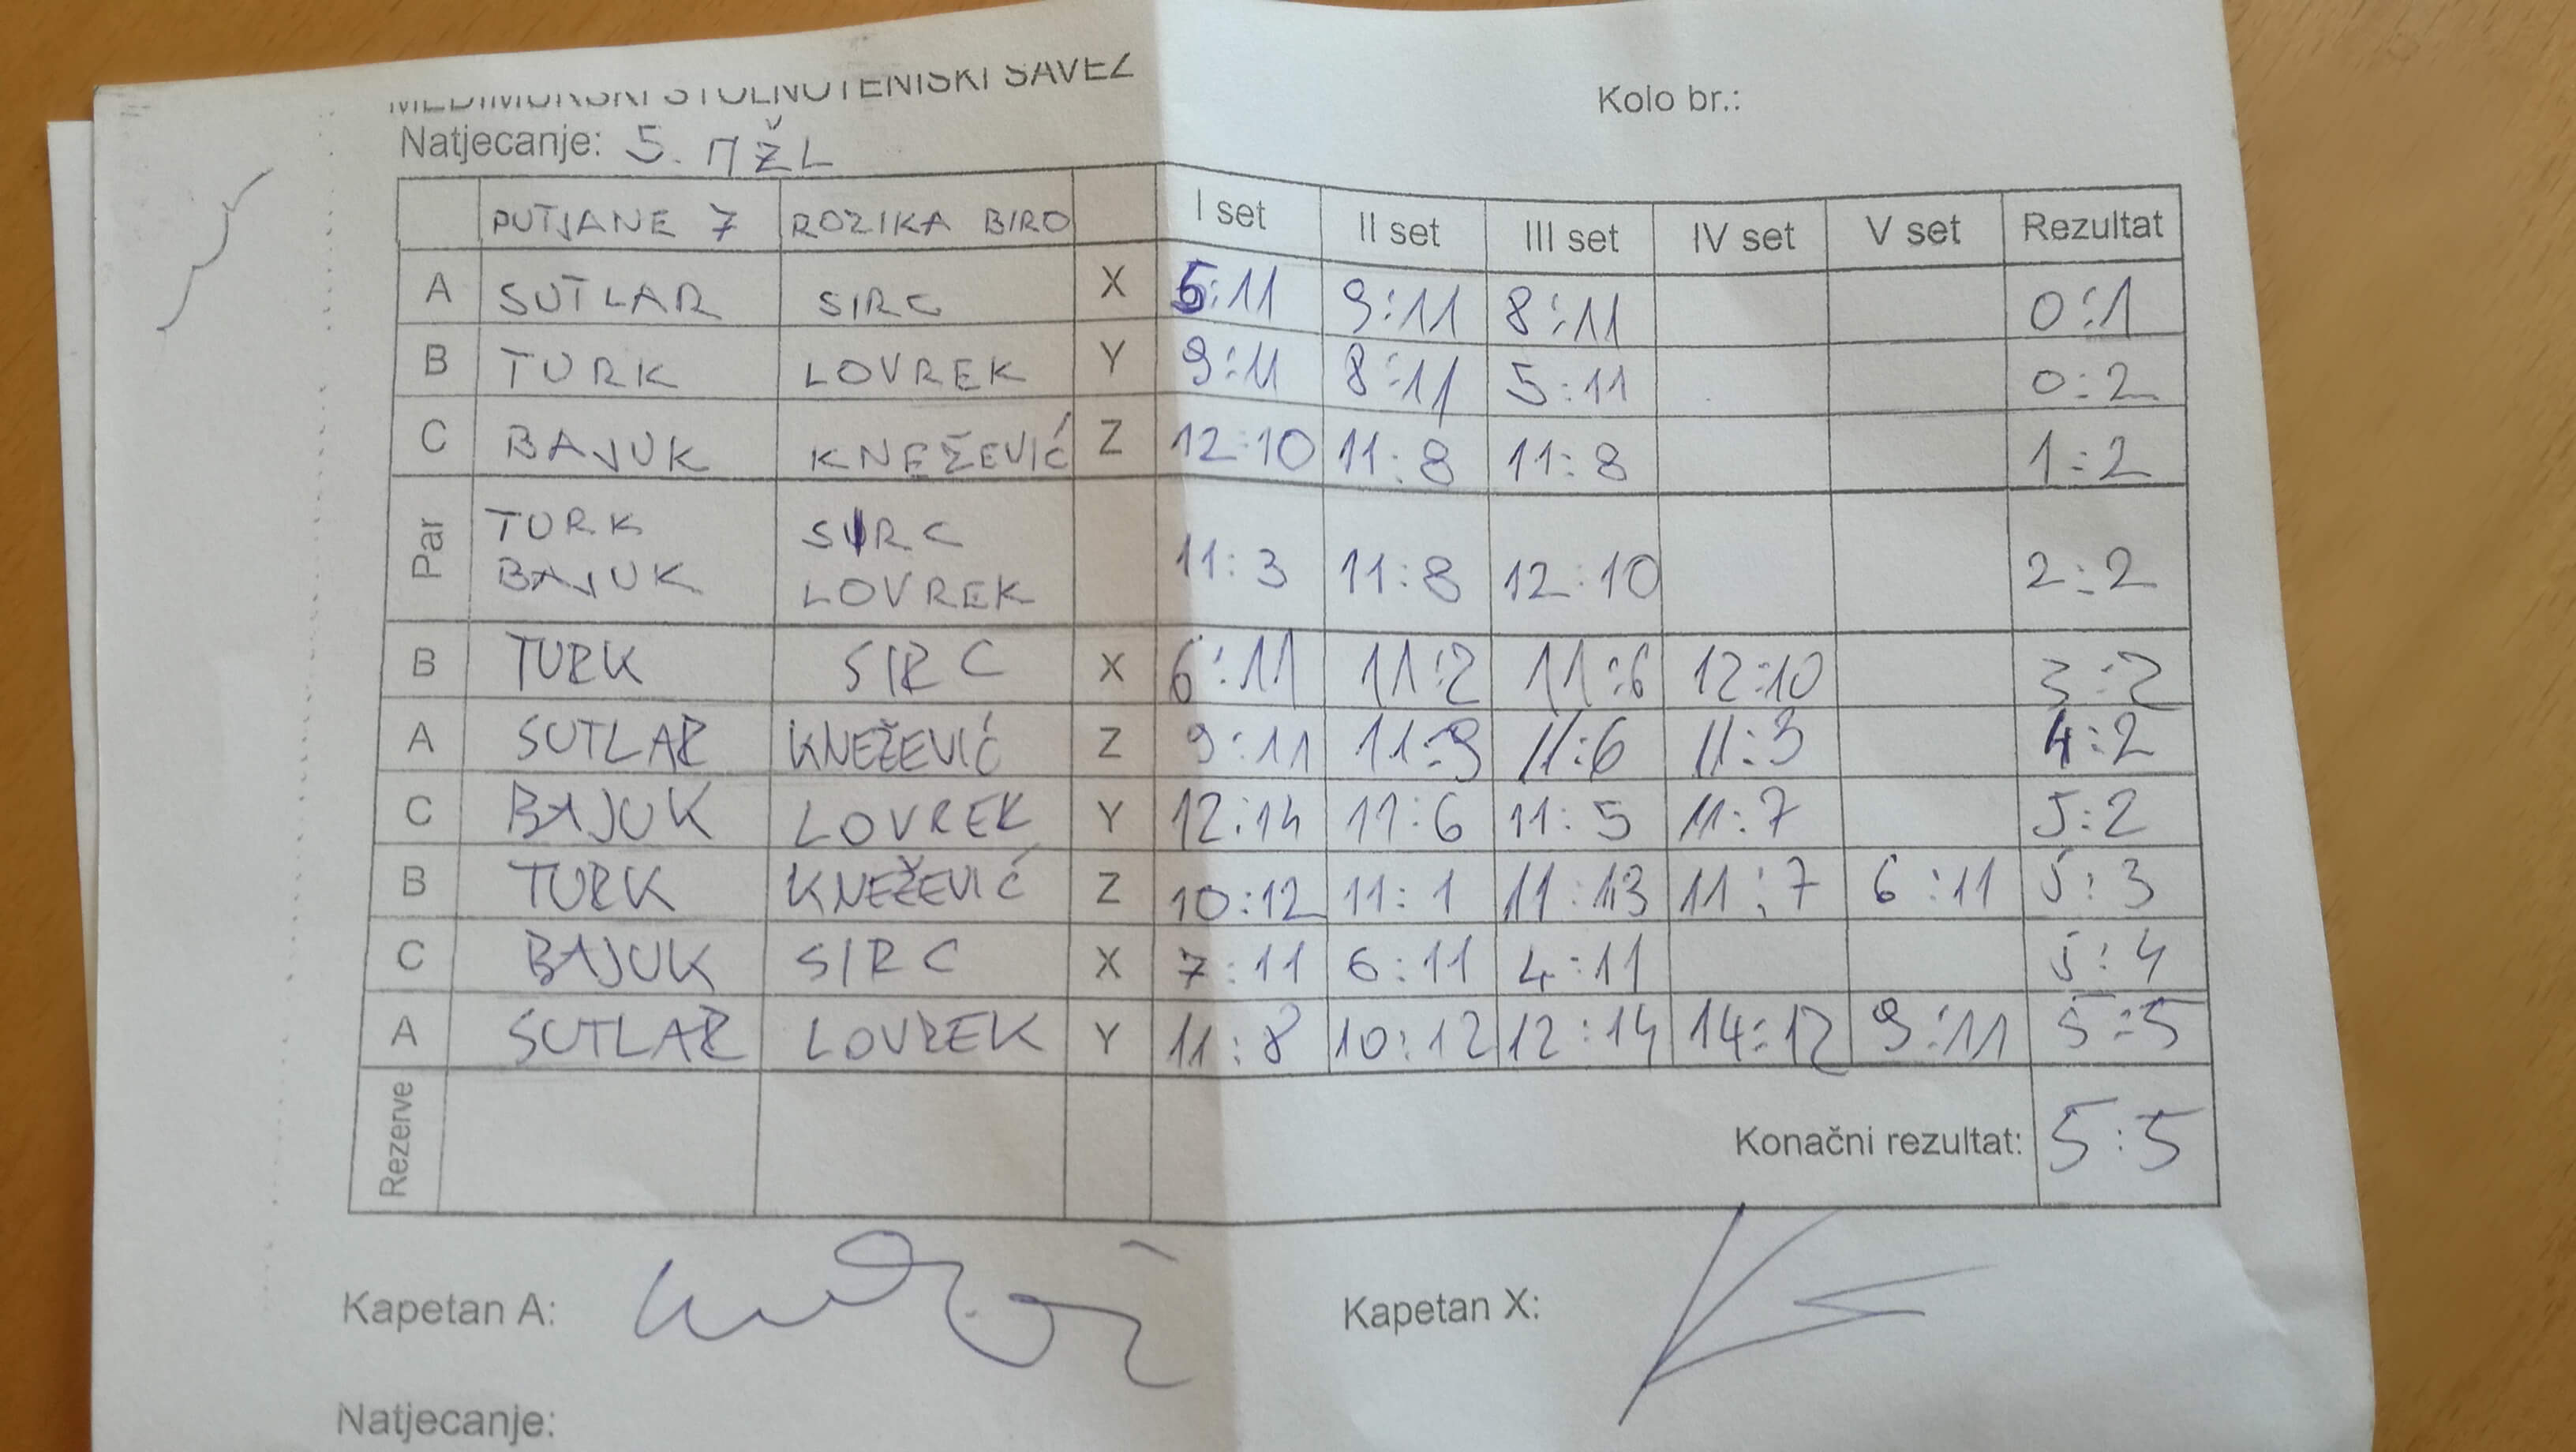 MEĐIMURSKI STOLNOTENISKI SAVEZ
Kolo br.:
Natjecanje: 5. MŽL
PUTJANE 7 ROZIKA BIRO I set II set III set IV set V set Rezultat
A SUTLAR SIRC X 5:11 9:11 8:11 0:1
B TURK LOVREK Y 9:11 8:11 5:11 0:2
C BAJUK KNEŽEVIĆ Z 12:10 11:8 11:8 1:2
Par TURK BAJUK SIRC LOVREK 11:3 11:8 12:10 2:2
B TURK SIRC X 6:11 11:2 11:6 12:10 3:2
A SUTLAR KNEŽEVIĆ Z 9:11 11:9 11:6 11:3 4:2
C BAJUK LOVREK Y 12:14 11:6 11:5 11:7 5:2
B TURK KNEŽEVIĆ Z 10:12 11:1 11:13 11:7 6:11 5:3
C BAJUK SIRC X 7:11 6:11 4:11 5:4
A SUTLAR LOVREK Y 11:8 10:12 12:14 14:12 9:11 5:5
Rezerve Konačni rezultat: 5:5
Kapetan A: Kapetan X:
Natjecanje: